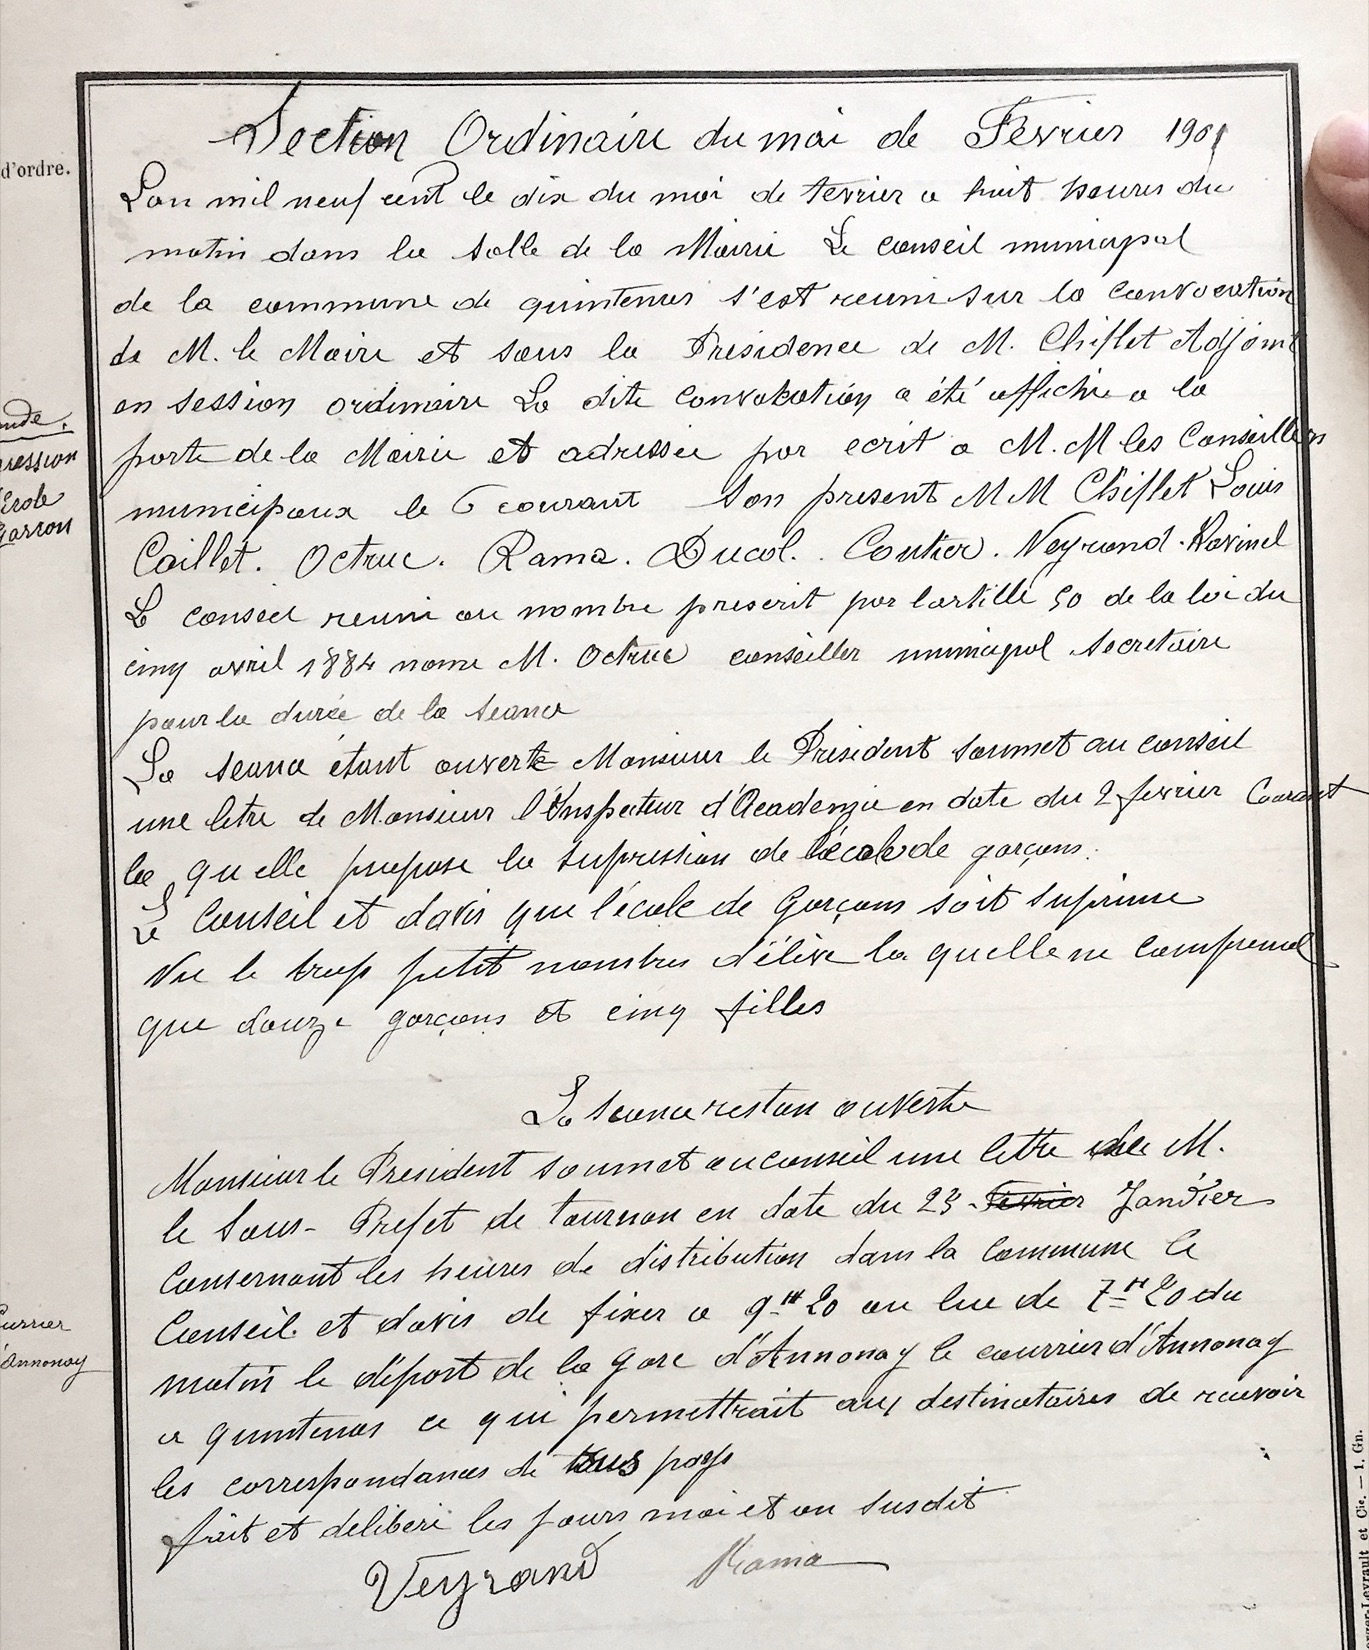 Section Ordinaire du moi de Fevrier 1901
d'ordre.
Lan mil neuf cent le dix du moi de fevrier a huit heures du
matin dans la salle de la Mairie Le conseil municipal
de la commune de quintenas s'est reuni sur la convocation
de M. le Maire et sous la Présidence de M. Chiflet Adjoint
en session ordinaire La dite convokation a été affichie a la
porte de la Mairie et adressée par ecrit a M. M les Conseillers
municipaux le 6 courant Son present MM Chiflet Louis
Caillet. Octruc. Rama. Ducol. Coutier. Veyrand. Ravinel
Le conseil reuni au nombre prescrit par lartille 50 de la loi du
cinq avril 1884 nome M. Octruc conseiller municipal secretaire
pour la durée de la seance
La seance étant ouverte Monsieur le Président soumet au conseil
une letre de Monsieur l'Inspecteur d'Academie en date du 2 fevrier Courant
la quelle propose la supression de l'école de garçons.
Le Conseil et davis que l'école de Garçons soit suprime
Vu le trop petit nombres d'élève la quelle ne comprend
que douze garçons et cinq filles
La seance restan ouverte
Monsieur le President soumet au conseil une lettre de M.
le Sous-Prefet de tournon en date du 23 Fevrier Janvier
Consernant les heures de distribution dans la Commune Le
Conseil et davis de fixer a 9 H 20 au lieu de 7 H 20 du
matin le départ de la gare d'Annonay le courrier d'Annonay
a quintenas ce qui permettrait aux destinataires de recevoir
les correspondances de tous pays
fait et déliberé les jours moi et an susdit
Veyrand Rama
Ecole
Garson
Currier
d'Annonay
Levrault et Cie. — 1. Gn.